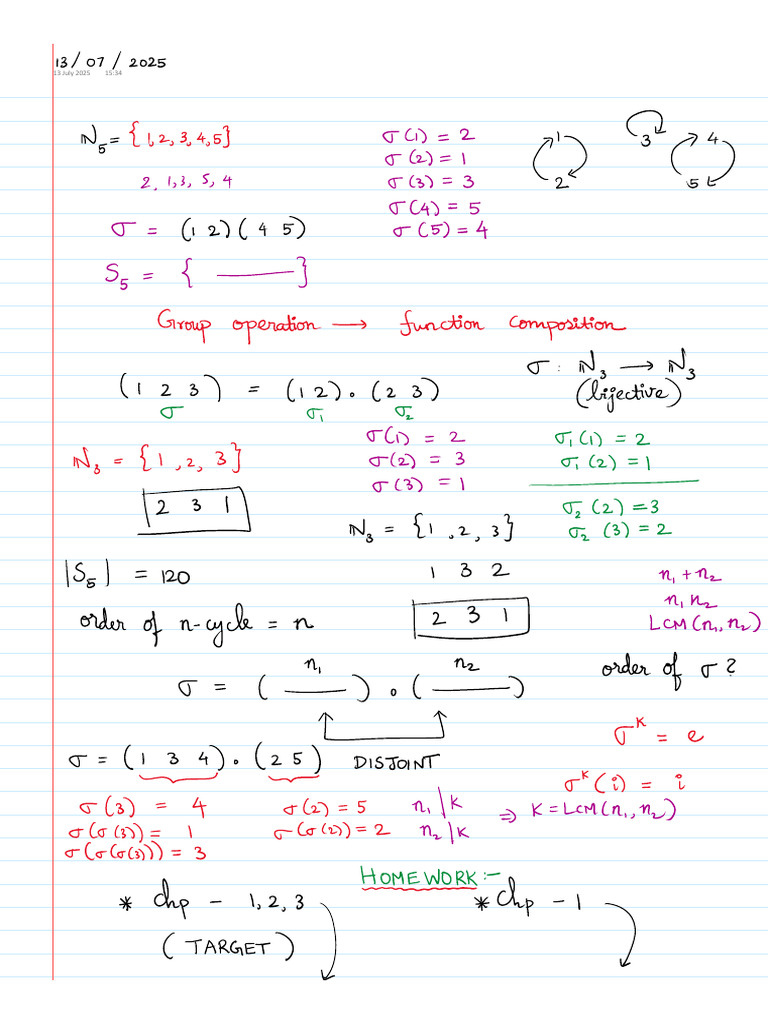 13/07/2025
13 July 2025 15:34
ℕ₅ = {1, 2, 3, 4, 5}
2, 1, 3, 5, 4
σ(1) = 2
σ(2) = 1
σ(3) = 3
σ(4) = 5
σ(5) = 4
1
2
3
4
5
σ = (1 2)(4 5)
S₅ = { ——— }
Group operation ⟶ function composition
σ : ℕ₃ ⟶ ℕ₃
(bijective)
(1 2 3) = (1 2) ∘ (2 3)
σ σ₁ σ₂
ℕ₃ = {1, 2, 3}
2 3 1
σ(1) = 2
σ(2) = 3
σ(3) = 1
σ₁(1) = 2
σ₁(2) = 1
σ₂(2) = 3
σ₂(3) = 2
ℕ₃ = {1, 2, 3}
1 3 2
2 3 1
|S₅| = 120
order of n-cycle = n
n₁ + n₂
n₁ n₂
LCM(n₁, n₂)
n₁ n₂
σ = ( ——— ) ∘ ( ——— )
order of σ ?
DISJOINT
σᴷ = e
σᴷ(i) = i
σ = (1 3 4) ∘ (2 5)
σ(3) = 4
σ(σ(3)) = 1
σ(σ(σ(3))) = 3
σ(2) = 5
σ(σ(2)) = 2
n₁ | K
n₂ | K
⇒ K = LCM(n₁, n₂)
HOMEWORK :-
* Chp - 1, 2, 3
(TARGET)
* Chp - 1